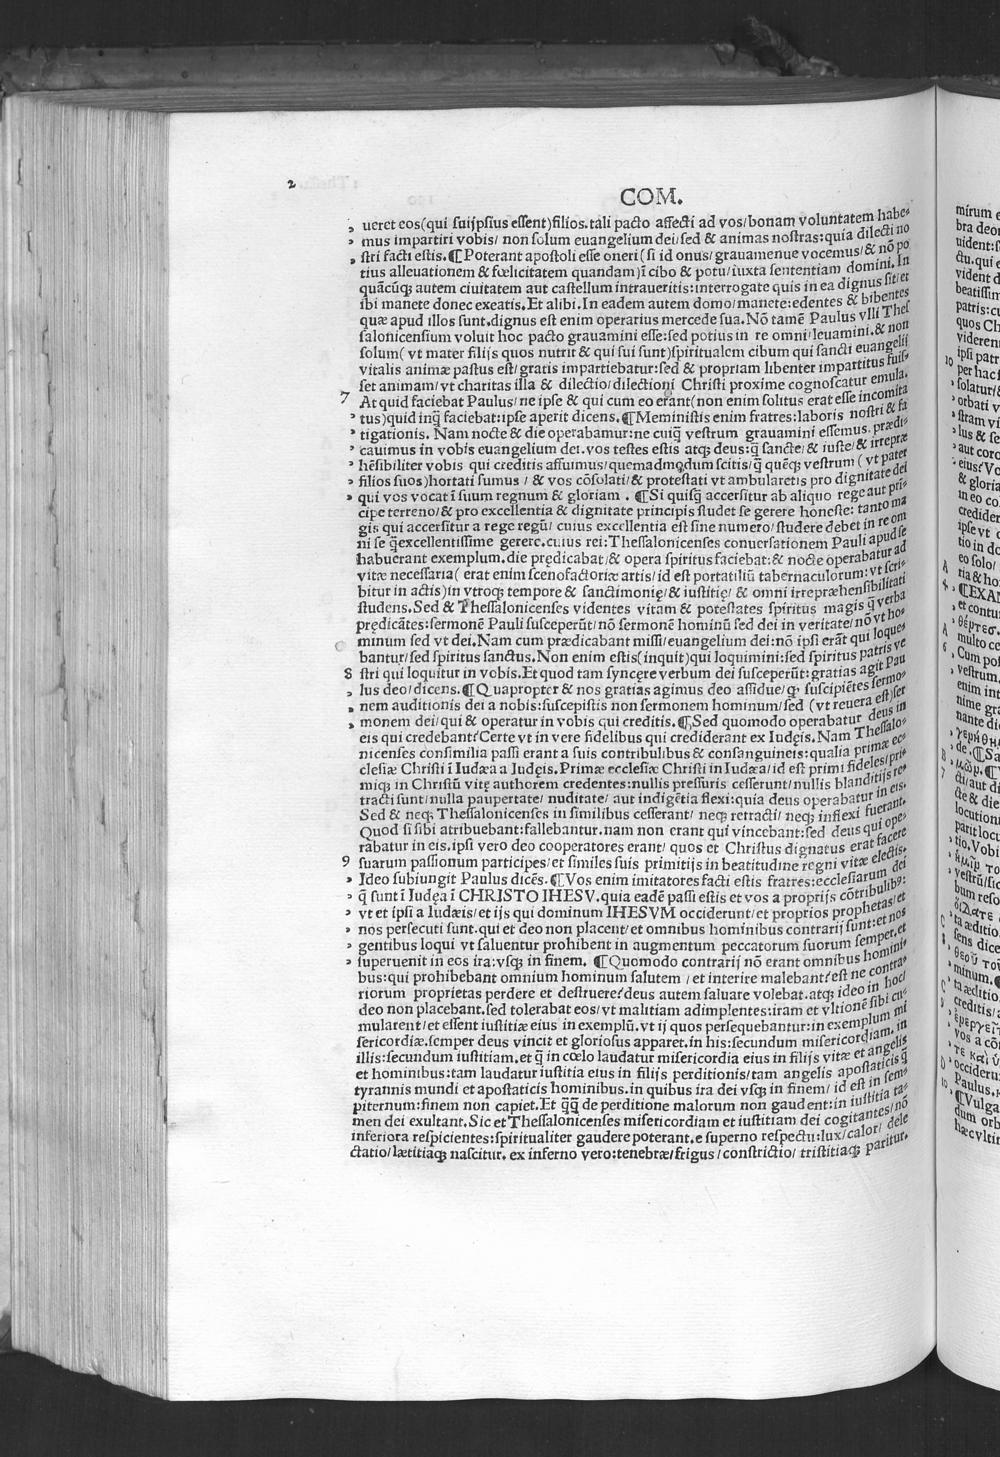 2
COM.
, ueret eos(qui suijpsius essent)filios.tali pacto affecti ad vos/bonam voluntatem habe⸗
, mus impartiri vobis/ non solum euangelium dei/sed & animas nostras:quia dilecti no
, stri facti estis.¶Poterant apostoli esse oneri(si id onus/grauamenue vocemus/& nō po
tius alleuationem & fœlicitatem quandam)ī cibo & potu/iuxta sententiam domini.In
quācūqꝫ autem ciuitatem aut castellum intraueritis:interrogate quis in ea dignus sit/et
ibi manete donec exeatis.Et alibi.In eadem autem domo/manete:edentes & bibentes
quæ apud illos sunt.dignus est enim operarius mercede sua.Nō tamē Paulus vlli Thes
salonicensium voluit hoc pacto grauamini esse:sed potius in re omni/leuamini.& non
solum(vt mater filijs quos nutrit & qui sui sunt)spiritualem cibum qui sancti euangelii
vitalis animæ pastus est/gratis impartiebatur:sed & propriam libenter impartitus fuis⸗
set animam/vt charitas illa & dilectio/dilectioni Christi proxime cognoscatur emula.
7 At quid faciebat Paulus/ne ipse & qui cum eo erant(non enim solitus erat esse incomita
, tus)quid inq̄ faciebat:ipse aperit dicens.¶Meministis enim fratres:laboris nostri & fa
, tigationis. Nam nocte & die operabamur:ne cuiq̄ vestrum grauamini essemus.prædi⸗
, cauimus in vobis euangelium dei.vos testes estis atqꝫ deus:q̄ sancte/& iuste/& irrepræ
, hēsibiliter vobis qui creditis affuimus/quemadmodum scitis/q̄ quēqꝫ vestrum(vt pater
, filios suos)hortati sumus / & vos cōsolati/& protestati vt ambularetis pro dignitate dei
, qui vos vocat ī suum regnum & gloriam . ¶Si quisq̄ accersitur ab aliquo rege aut pri⸗
cipe terreno/& pro excellentia & dignitate principis studet se gerere honeste: tanto ma
gis qui accersitur a rege regū/ cuius excellentia est sine numero/studere debet in re om
ni se q̄excellentissime gerere.cuius rei:Thessalonicenses conuersationem Pauli apud se
habuerant exemplum.die prędicabat/& opera spiritus faciebat:& nocte operabatur ad
vitæ necessaria(erat enim scenofactoriæ artis/id est portatiliū tabernaculorum:vt scri⸗
bitur in actis)in vtroqꝫ tempore & sanctimonię/& iustitię/& omni irrepræhensibilitati
studens.Sed & Thessalonicenses videntes vitam & potestates spiritus magis q̄ verba
prędicātes:sermonē Pauli susceperūt/nō sermonē hominū sed dei in veritate/nō vt ho⸗
minum sed vt dei.Nam cum prædicabant missi/euangelium dei:nō ipsi erāt qui loque⸗
bantur/sed spiritus sanctus.Non enim estis(inquit)qui loquimini:sed spiritus patris ve
8 stri qui loquitur in vobis.Et quod tam syncęre verbum dei susceperūt:gratias agit Pau
, lus deo/dicens.¶Quapropter & nos gratias agimus deo assidue/qꝫ suscipiētes sermo⸗
, nem auditionis dei a nobis:suscepistis non sermonem hominum/sed (vt reuera est)ser
, monem dei/qui & operatur in vobis qui creditis.¶Sed quomodo operabatur deus in
eis qui credebant?Certe vt in vere fidelibus qui crediderant ex Iudęis. Nam Thessalo⸗
nicenses consimilia passi erant a suis contribulibus & consanguineis:qualia primæ ec⸗
clesiæ Christi ī Iudæa a Iudęis.Primæ ecclesiæ Christi in Iudæa/id est primi fideles/pri⸗
miqꝫ in Christū vitę authorem credentes:nullis pressuris cesserunt/nullis blanditijs re⸗
tracti sunt/nulla paupertate/ nuditate/ aut indigētia flexi:quia deus operabatur in eis.
Sed & neqꝫ Thessalonicenses in similibus cesserant/ neqꝫ retracti/ neqꝫ inflexi fuerant.
Quod si sibi atribuebant:fallebantur.nam non erant qui vincebant:sed deus qui ope⸗
rabatur in eis.ipsi vero deo cooperatores erant/ quos et Christus dignatus erat facere
9 suarum passionum participes/et similes suis primitijs in beatitudine regni vitæ electis.
, Ideo subiungit Paulus dicēs.¶Vos enim imitatores facti estis fratres:ecclesiarum dei
, q̄ sunt ī Iudęa ī CHRISTO IHESV.quia eadē passi estis et vos a proprijs cōtribulibꝰ:
, vt et ipsi a Iudæis/et ijs qui dominum IHESVM occiderunt/et proprios prophetas/et
, nos persecuti sunt.qui et deo non placent/et omnibus hominibus contrarij sunt:et nos
, gentibus loqui vt saluentur prohibent in augmentum peccatorum suorum semper.et
, superuenit in eos ira:vsqꝫ in finem. ¶Quomodo contrarij nō erant omnibus homini⸗
bus:qui prohibebant omnium hominum salutem / et interire malebant?est ne contra⸗
riorum proprietas perdere et destruere?deus autem saluare volebat.atqꝫ ideo in hoc/
deo non placebant.sed tolerabat eos/vt malitiam adimplentes:iram et vltionē sibi cu⸗
mularent/et essent iustitiæ eius in exemplū.vt ij quos persequebantur:in exemplum mi
sericordiæ.semper deus vincit et gloriosus apparet.in his:secundum misericordiam.in
illis:secundum iustitiam.et q̄ in cœlo laudatur misericordia eius in filijs vitæ et angelis
et hominibus:tam laudatur iustitia eius in filijs perditionis/tam angelis apostaticis q̄
tyrannis mundi et apostaticis hominibus.in quibus ira dei vsqꝫ in finem/ id est in sem⸗
piternum:finem non capiet.Et q̄q̄ de perditione malorum non gaudent:in iustitia ta⸗
men dei exultant.Sic et Thessalonicenses misericordiam et iustitiam dei cogitantes/nō
inferiora respicientes:spiritualiter gaudere poterant.e superno respectu:lux/calor/ dele
ctatio/lætitiaqꝫ nascitur. ex inferno vero:tenebræ/frigus/constrictio/ tristitiaqꝫ paritur.